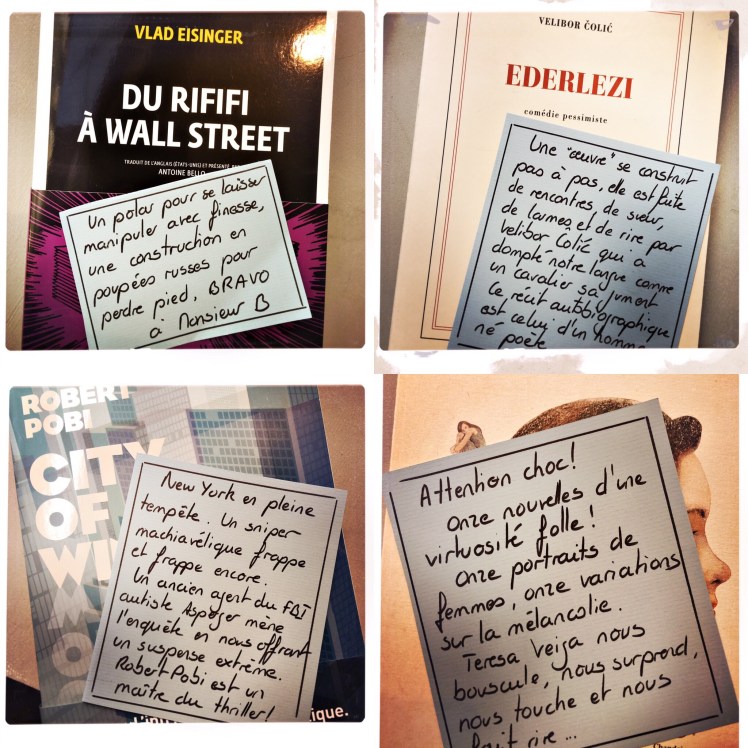 VLAD EISINGER
DU RIFIFI
À WALL STREET
TRADUIT DE L'ANGLAIS (ÉTATS-UNIS) ET PRÉSENTÉ
ANTOINE BELLO
Un polar pour se laisser
manipuler avec finesse,
une construction en
poupées russes pour
perdre pied, BRAVO
à Monsieur B
VELIBOR ČOLIĆ
EDERLEZI
comédie pessimiste
Une "œuvre" se construit
pas à pas, elle est faite
de rencontres de sueur,
de larmes et de rire par
Velibor Čolić qui a
dompté notre langue comme
un cavalier sa jument
Ce récit autobiographique
est celui d'un homme
né poète
ROBERT
POBI
CITY
OF
WI
New York en pleine
tempête. Un sniper
machiavélique frappe
et frappe encore.
Un ancien agent du FBI
autiste Asperger mène
l'enquête en nous offrant
un suspense extrême.
Robert Pobi est un
maître du thriller!
ique.
Attention choc!
Onze nouvelles d'une
virtuosité folle!
Onze portraits de
femmes, onze variations
sur la mélancolie.
Teresa Veiga nous
bouscule, nous surprend,
nous touche et nous
fait rire...